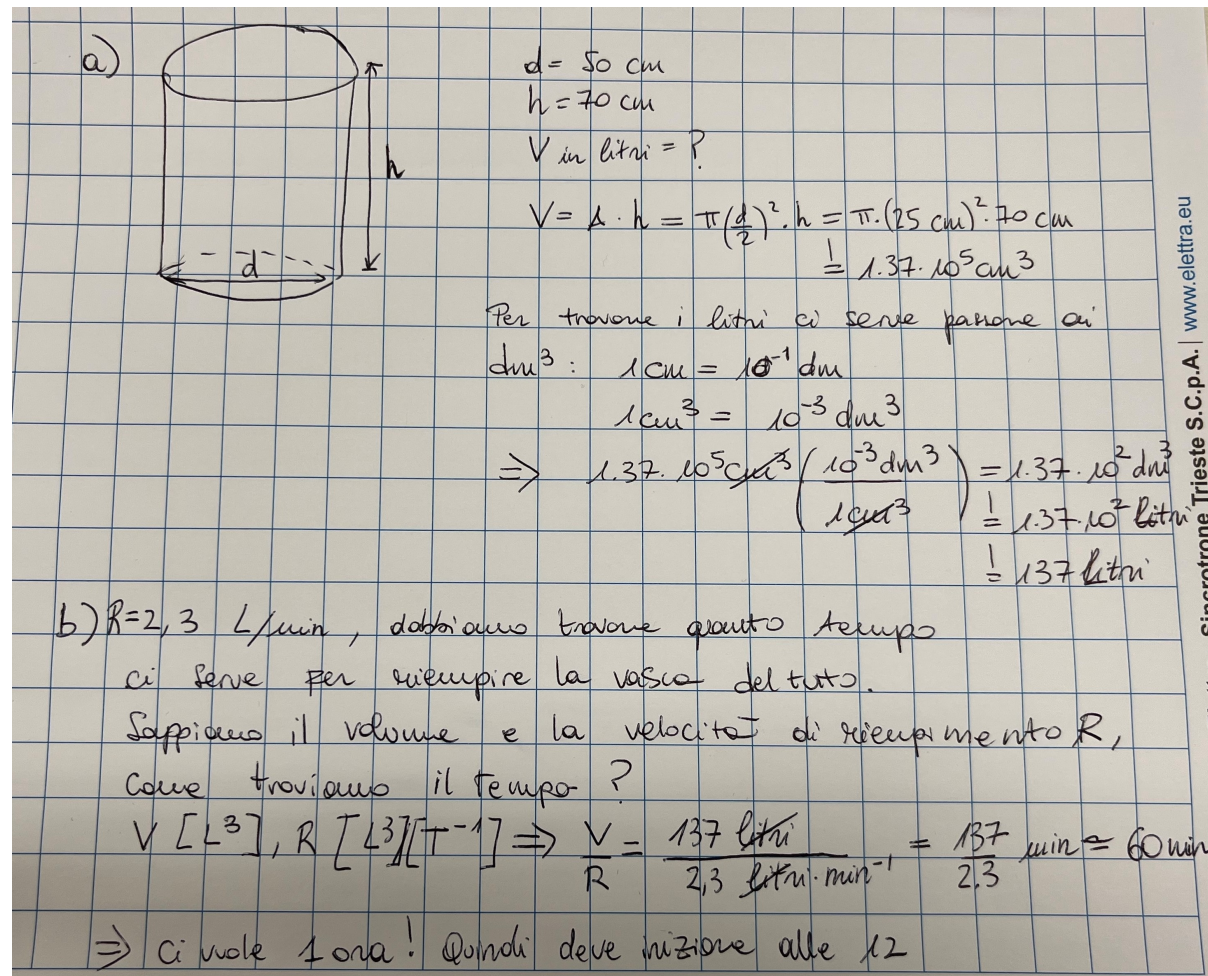 a)
d = 50 cm
h = 70 cm
h
V in litri = ?
V = A · h = π(d/2)². h = π·(25 cm)²·70 cm
= 1.37·10⁵ cm³
d
Per trovare i litri ci serve passare ai
dm³ : 1 cm = 10⁻¹ dm
1 cm³ = 10⁻³ dm³
⇒ 1.37·10⁵ cm³ (10⁻³ dm³ / 1 cm³) = 1.37·10² dm³
= 1.37·10² litri
= 137 litri
b) R=2,3 L/min, dobbiamo trovare quanto tempo
ci serve per riempire la vasca del tutto.
Sappiamo il volume e la velocità di riempimento R,
come troviamo il tempo ?
V [L³], R [L³][T⁻¹] ⇒ V/R = 137 litri / 2,3 litri · min⁻¹ = 137/2.3 min ≃ 60 min
⇒ Ci vuole 1 ora ! Quindi deve iniziare alle 12
Sincrotrone Trieste S.C.p.A. | www.elettra.eu